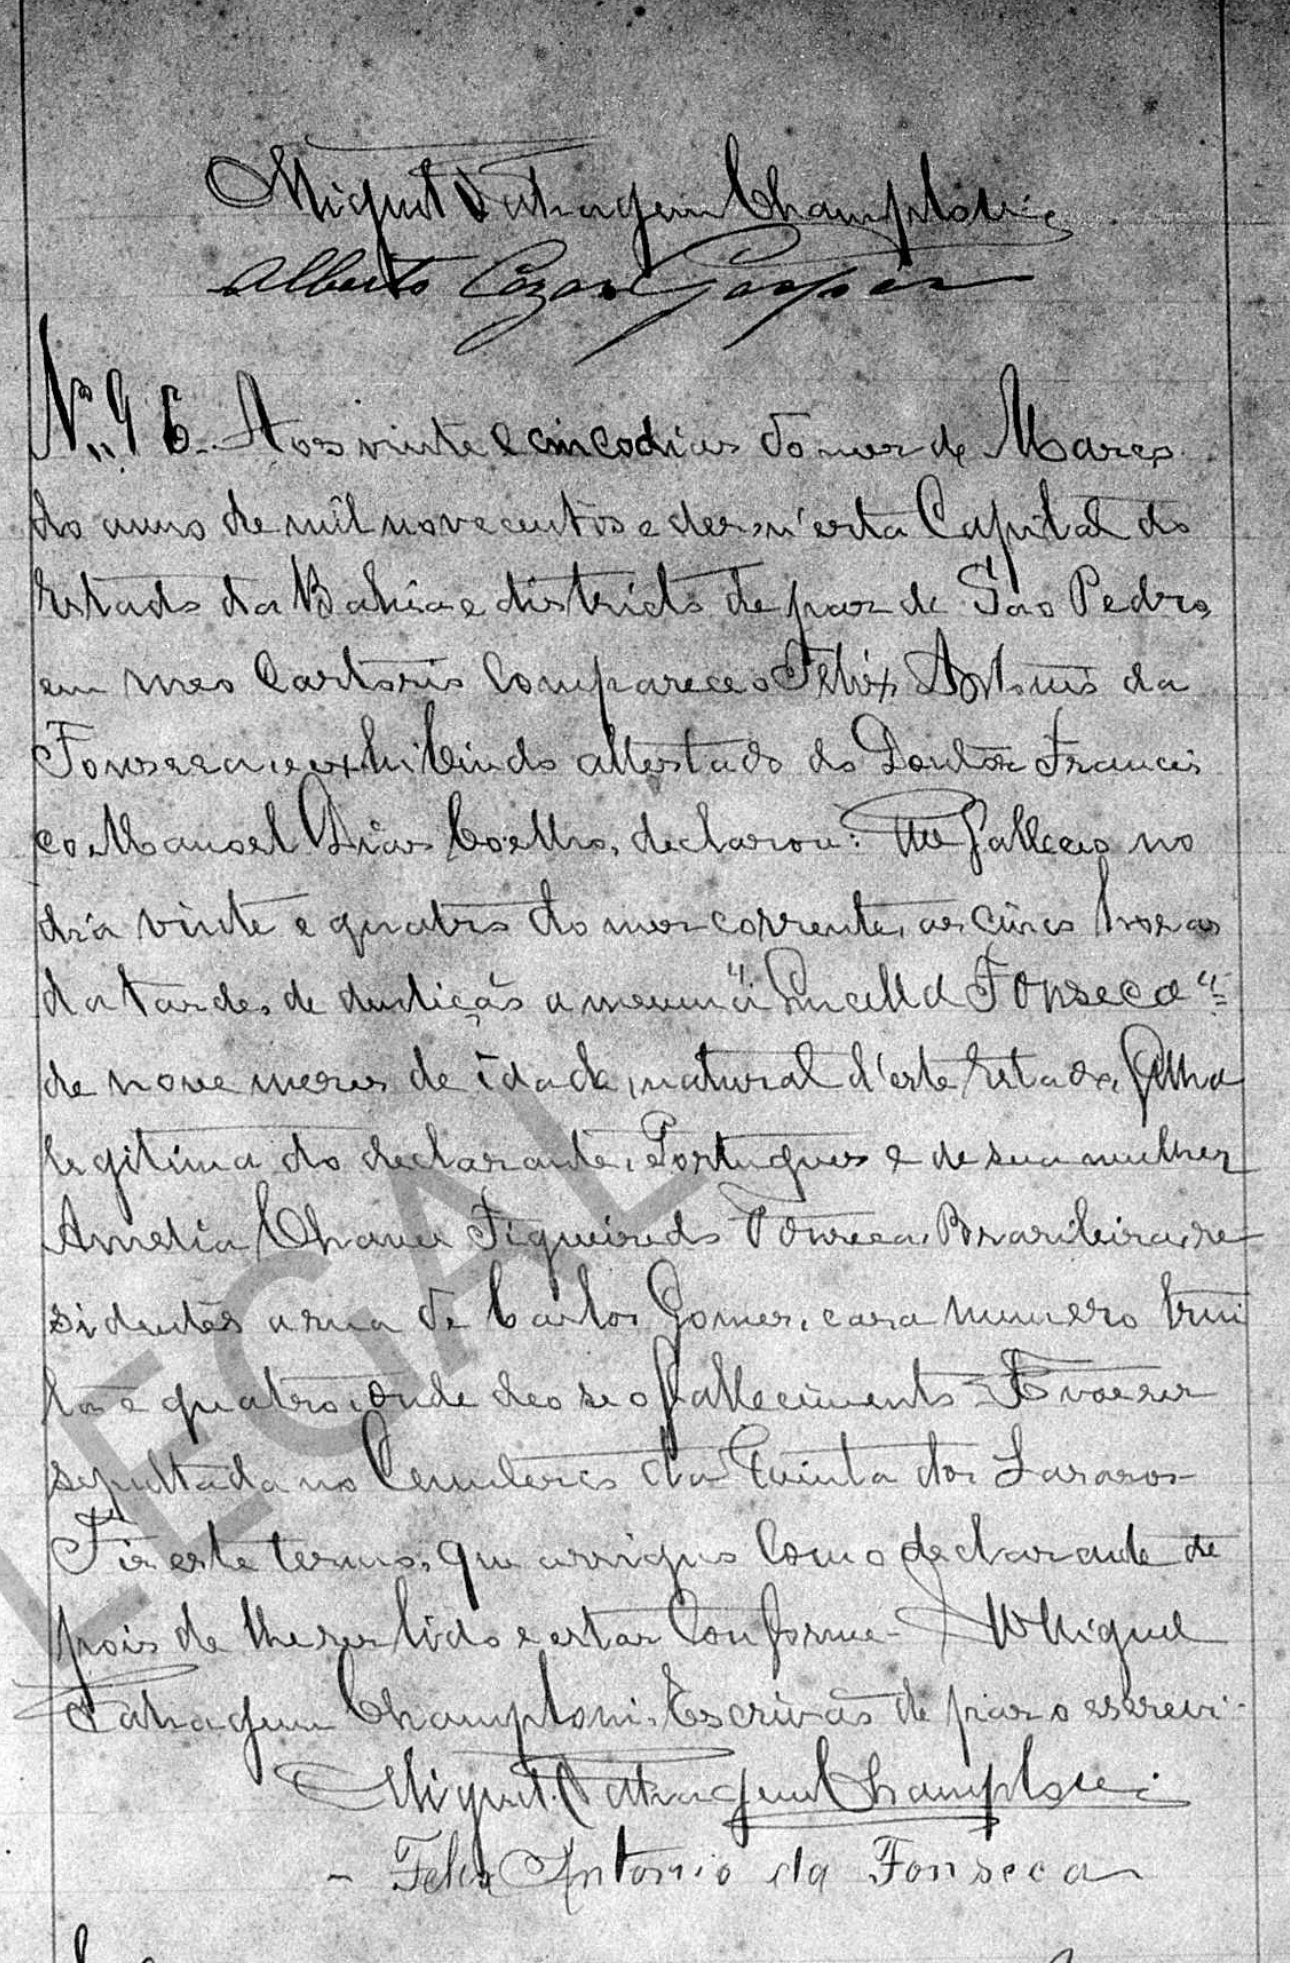 Miguel Champloni
Alberto Cezar Gaspar
Nº 96. Aos vinte e cinco dias do mez de Março
do anno de mil novecentos e dez, n'esta Capital do
Estado da Bahia e districto de paz de São Pedro,
em meo Cartorio compareceo Felix Antonio da
Fonseca, e exhibindo attestado do Doutor Francis
co Manoel Dias Coelho, declarou: Que falleceo no
dia vinte e quatro do mez corrente, as cinco horas
da tarde, de dentição a menina "Lucilla Fonseca"
de nove mezes de idade, natural d'este Estado, filha
legitima do declarante, Portuguez e de sua mulher
Amelia Chaves Figueiredo Fonseca, Brazileira, re
sidentes a rua de Carlos Gomes, casa numero trin
ta e quatro, onde deo se o fallecimento. E vae ser
sepultada no Cemiterio da Quinta dos Lazaros
Fiz este termo, que assigno com o declarante de
pois de lhe ser lido e estar conforme - Eu Miguel
Champloni, Escrivão de paz o escrevi.
Miguel Champloni
- Felix Antonio da Fonseca
LEGAL